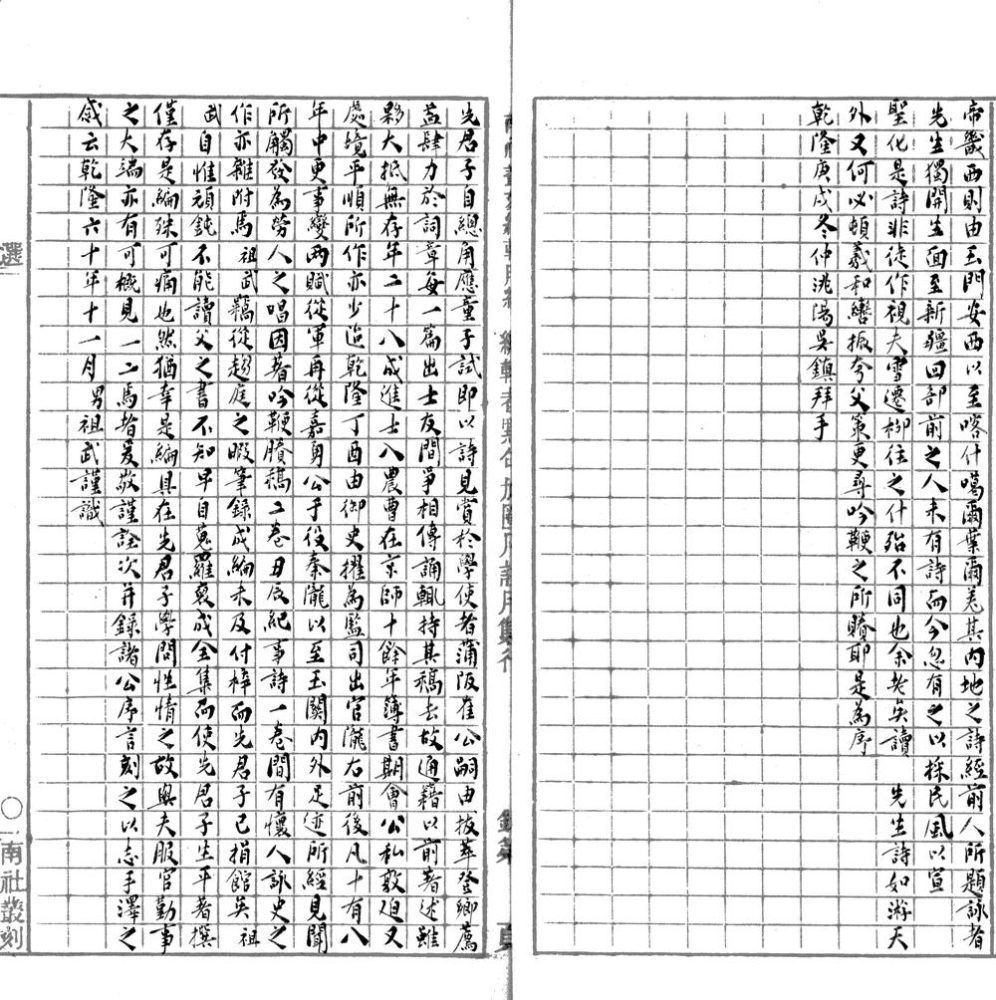 帝畿西則由玉門安西以至喀什噶爾葉爾羌其內地之詩經前人所題詠者
先生獨開生面至新疆回部前之人未有詩而今忽有之以採民風以宣
聖化是詩非徒作視夫雪遷柳往之什殆不同也余老矣讀先生詩如游天
外又何必頓羲和轡振夸父策更尋吟鞭之所賸耶是為序
乾隆庚戌冬仲洮陽吳鎮拜手
先君子自總角應童子試即以詩見賞於學使者蒲阪崔公嗣由拔萃登鄉薦
益肆力於詞章每一篇出士友間爭相傳誦輒持其稿去故通籍以前著述雖
夥大抵無存年二十八成進士入農曹在京師十餘年簿書期會公私敦迫又
處境平順所作亦少迨乾隆丁酉由御史擢為監司出官隴右前後凡十有八
年中更事變兩賦從軍再從嘉勇公于役秦隴以至玉關內外足迹所經見聞
所觸發為勞人之唱因著吟鞭賸稿二卷丑辰紀事詩一卷間有懷人詠史之
作亦雜附焉祖武竊從趨庭之暇筆錄成編未及付梓而先君子已捐館矣祖
武自惟頑鈍不能讀父之書不知早自蒐羅裒成全集而使先君子生平著撰
僅存是編殊可痛也然猶幸是編具在先君子學問性情之故與夫服官勤事
之大端亦有可概見一二焉者爰敬謹詮次并錄諸公序言刻之以志手澤之
感云乾隆六十年十一月男祖武謹識
選
〇一南社叢刻